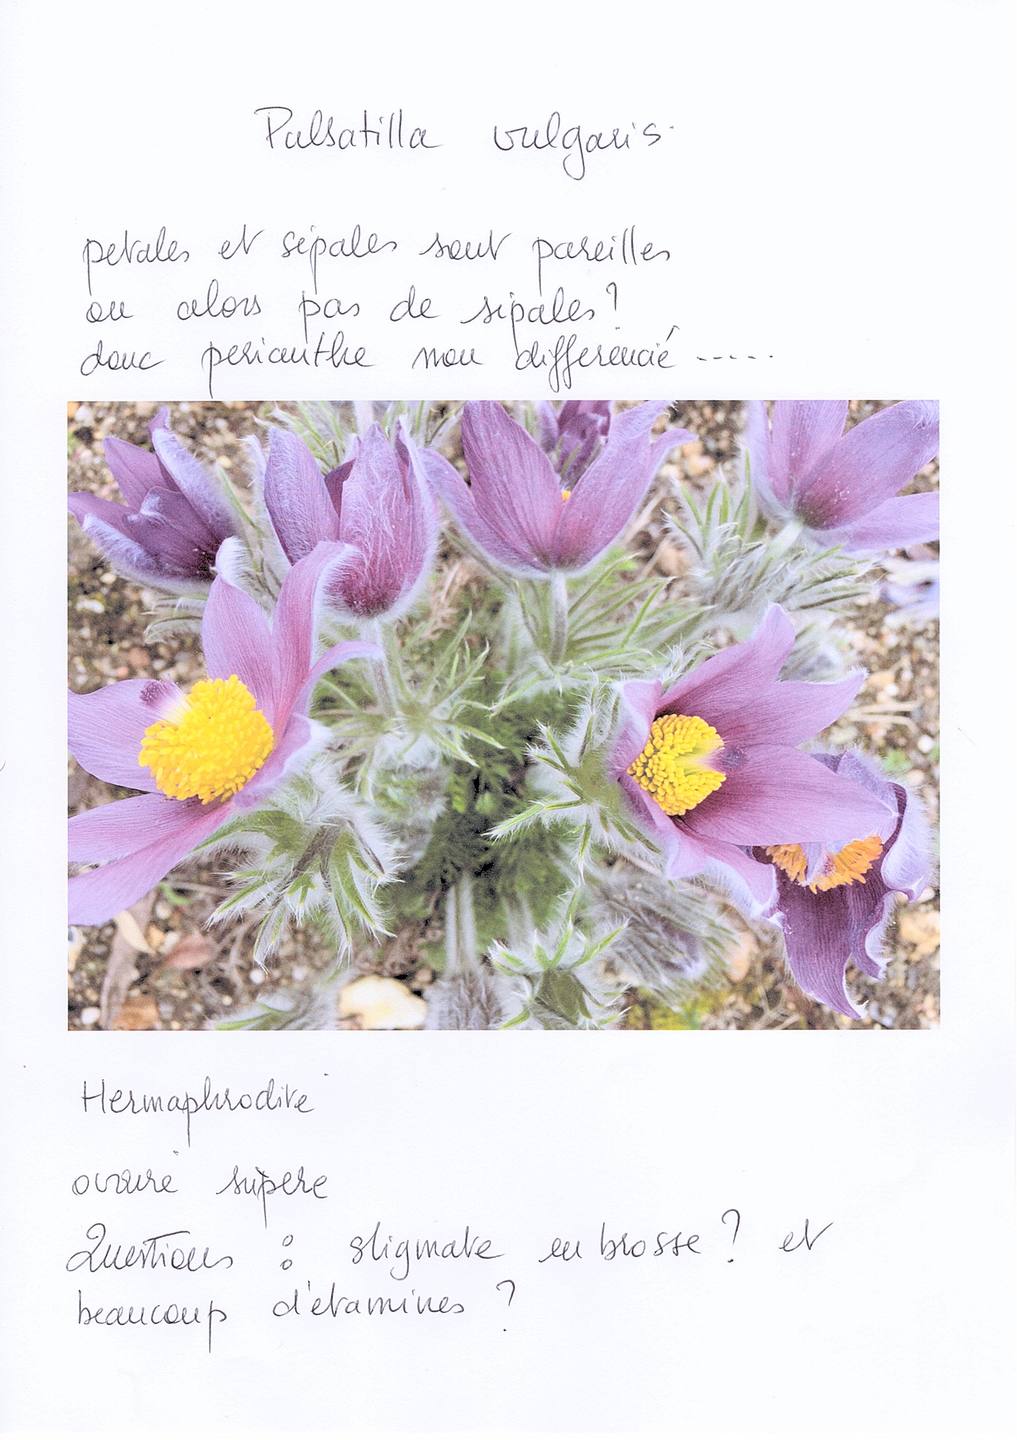 Pulsatilla vulgaris.
petales et sépales sont pareilles
ou alors pas de sépales?
donc perianthe non différencié -----
Hermaphrodite
ovaire supere
Questions : stigmate en brosse? et
beaucoup d'étamines?